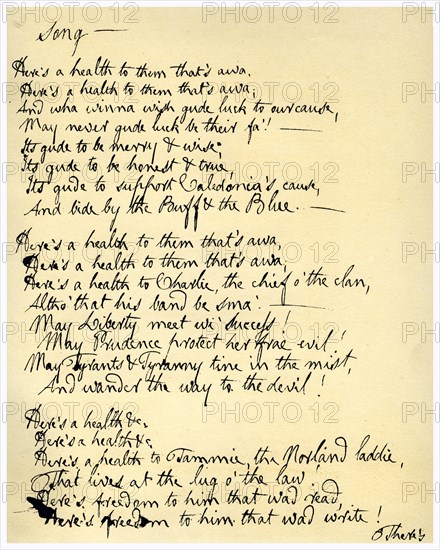 Song —
Here's a health to them that's awa,
Here's a health to them that's awa;
And wha winna wish gude luck to our cause,
May never gude luck be their fa'! —
Its gude to be merry & wise;
Its gude to be honest & true,
Its gude to support Caledonia's cause,
And bide by the Buff & the Blue. —
Here's a health to them that's awa,
Here's a health to them that's awa,
Here's a health to Charlie, the chief o' the clan,
Altho' that his band be sma'. —
May Liberty meet wi' success!
May Prudence protect her frae evil!
May Tyrants & Tyranny tine in the mist,
And wander the way to the devil!
Here's a health &c.
Here's a health &c.
Here's a health to Tammie, the Norland laddie,
That lives at the lug o' the law
Here's freedom to him that wad read,
Here's freedom to him that wad write!
There's
PHOTO 12